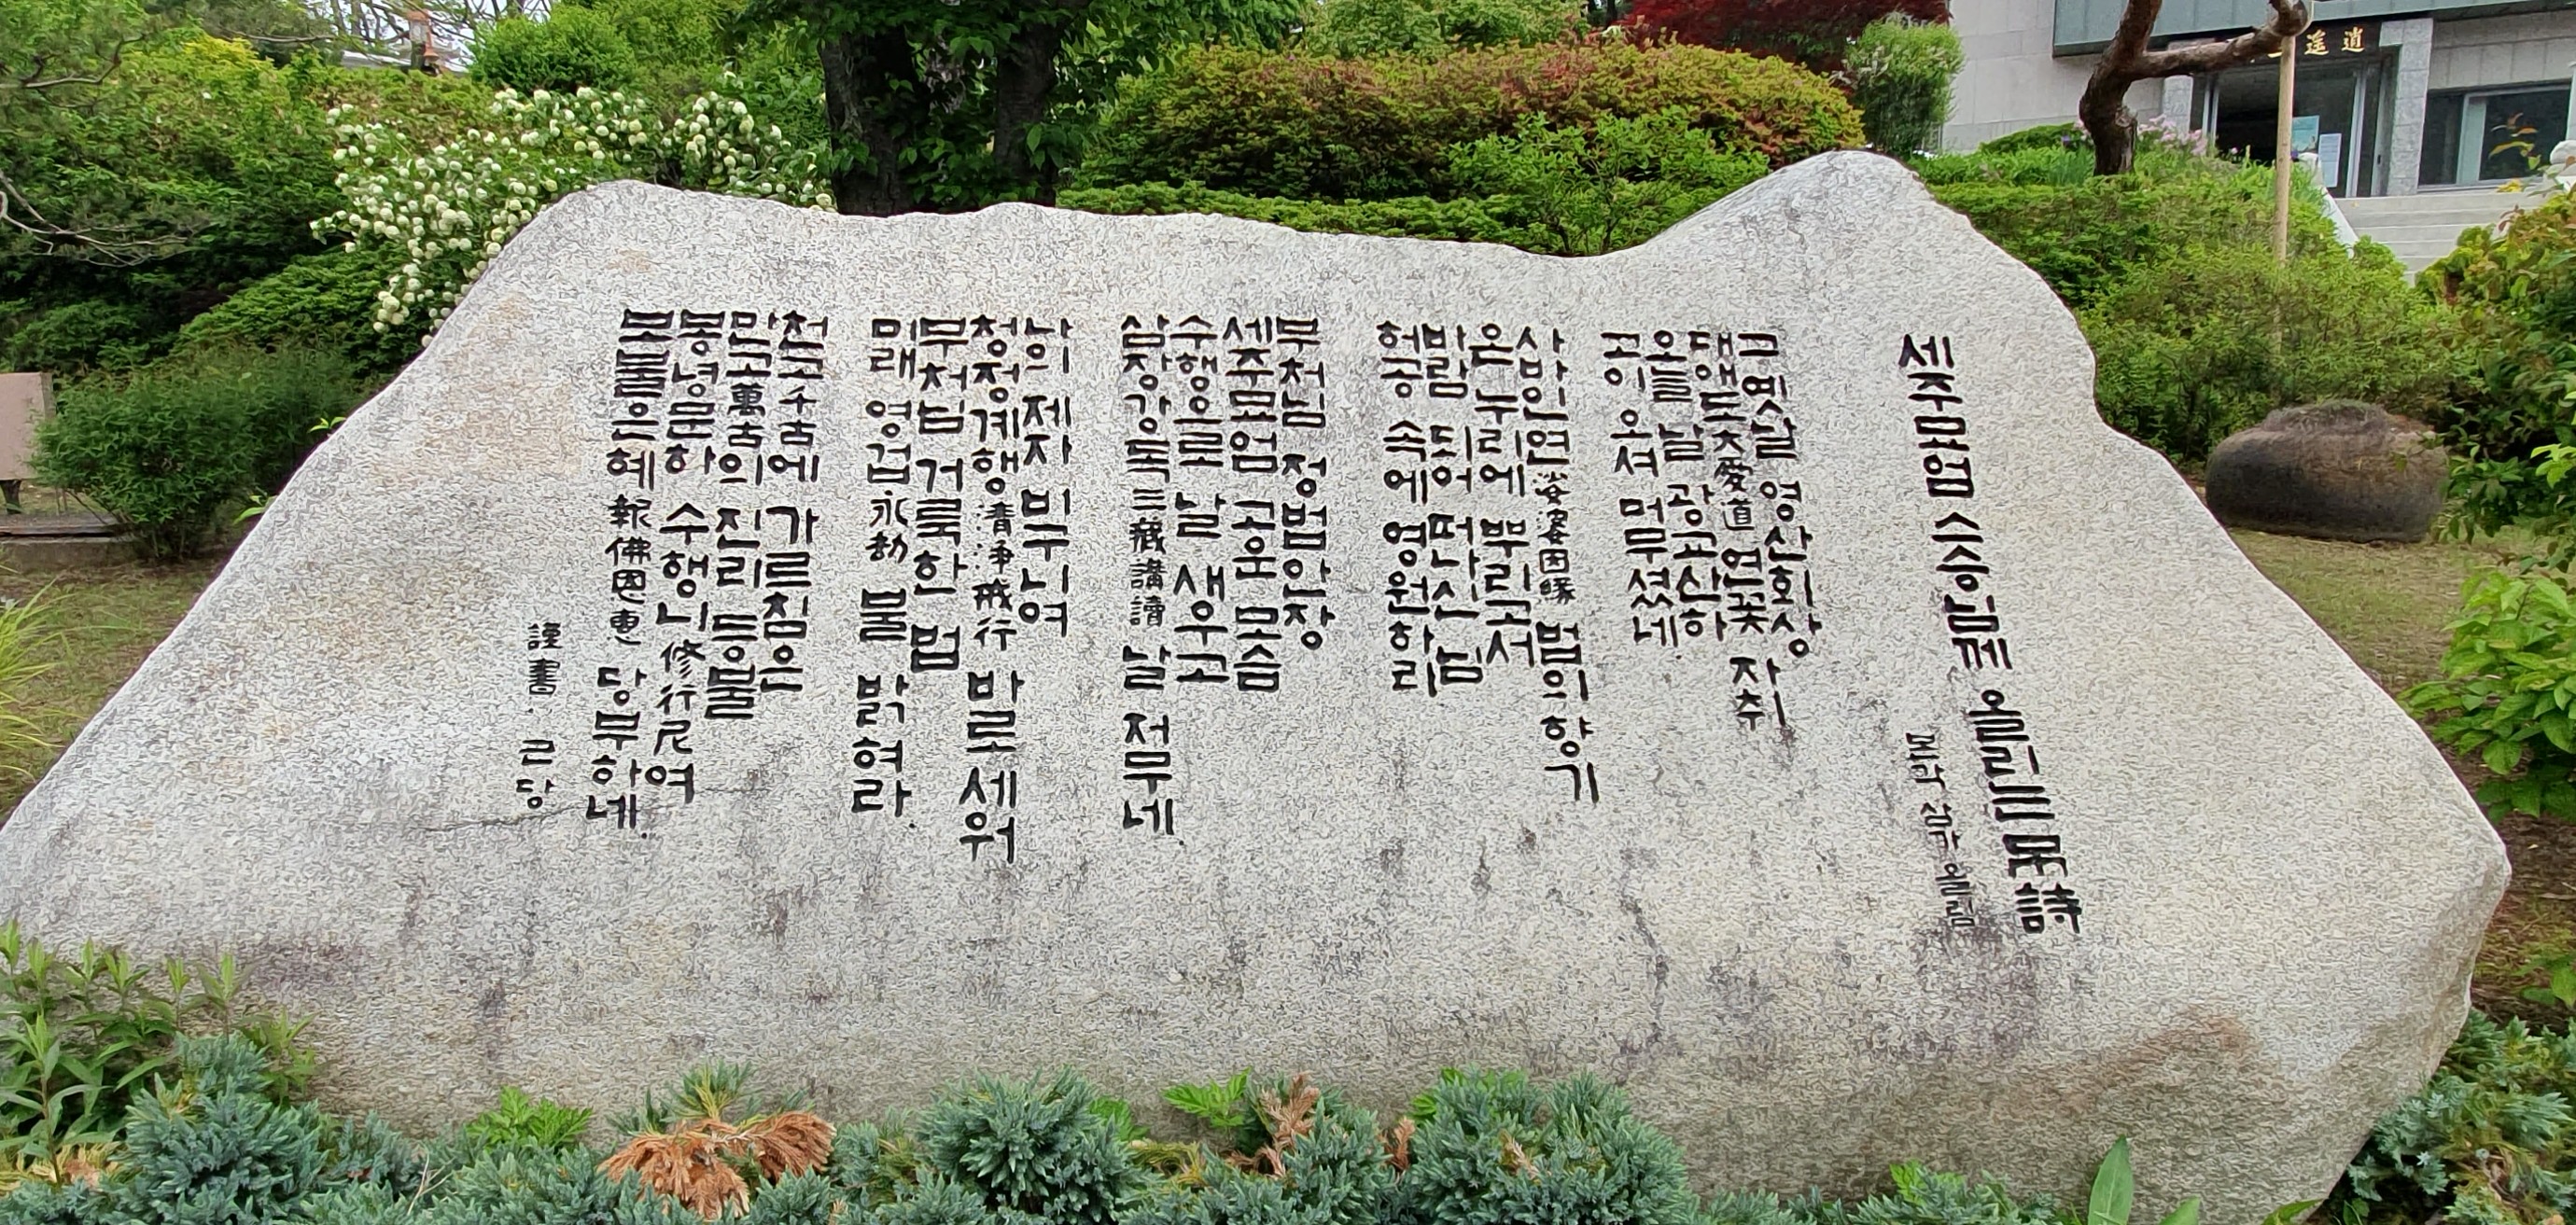 세주묘엄 스승님께 올리는 弔詩
본각 삼가 올림
그 옛날 영산회상
대애도大愛道 연꽃 자취
오늘 날 광교산하
고이 오셔 머무셨네.
사바인연娑婆因緣 법의 향기
온 누리에 뿌리고서
바람 되어 떠나신 님
허공 속에 영원하리
부처님 정법안장
세주묘엄 고운 모습
수행으로 날 새우고
삼장강독三藏講讀 날 저무네.
남의 제자 비구니여
청정계행淸淨戒行 바로 세워
부처님 거룩한 법
미래 영겁永劫 불 밝혀라.
천고千古에 가르침은
만고萬古의 진리 등불
봉녕문하 수행니修行尼여
보불은혜報佛恩惠 당부하네.
謹書. 근당
道遙